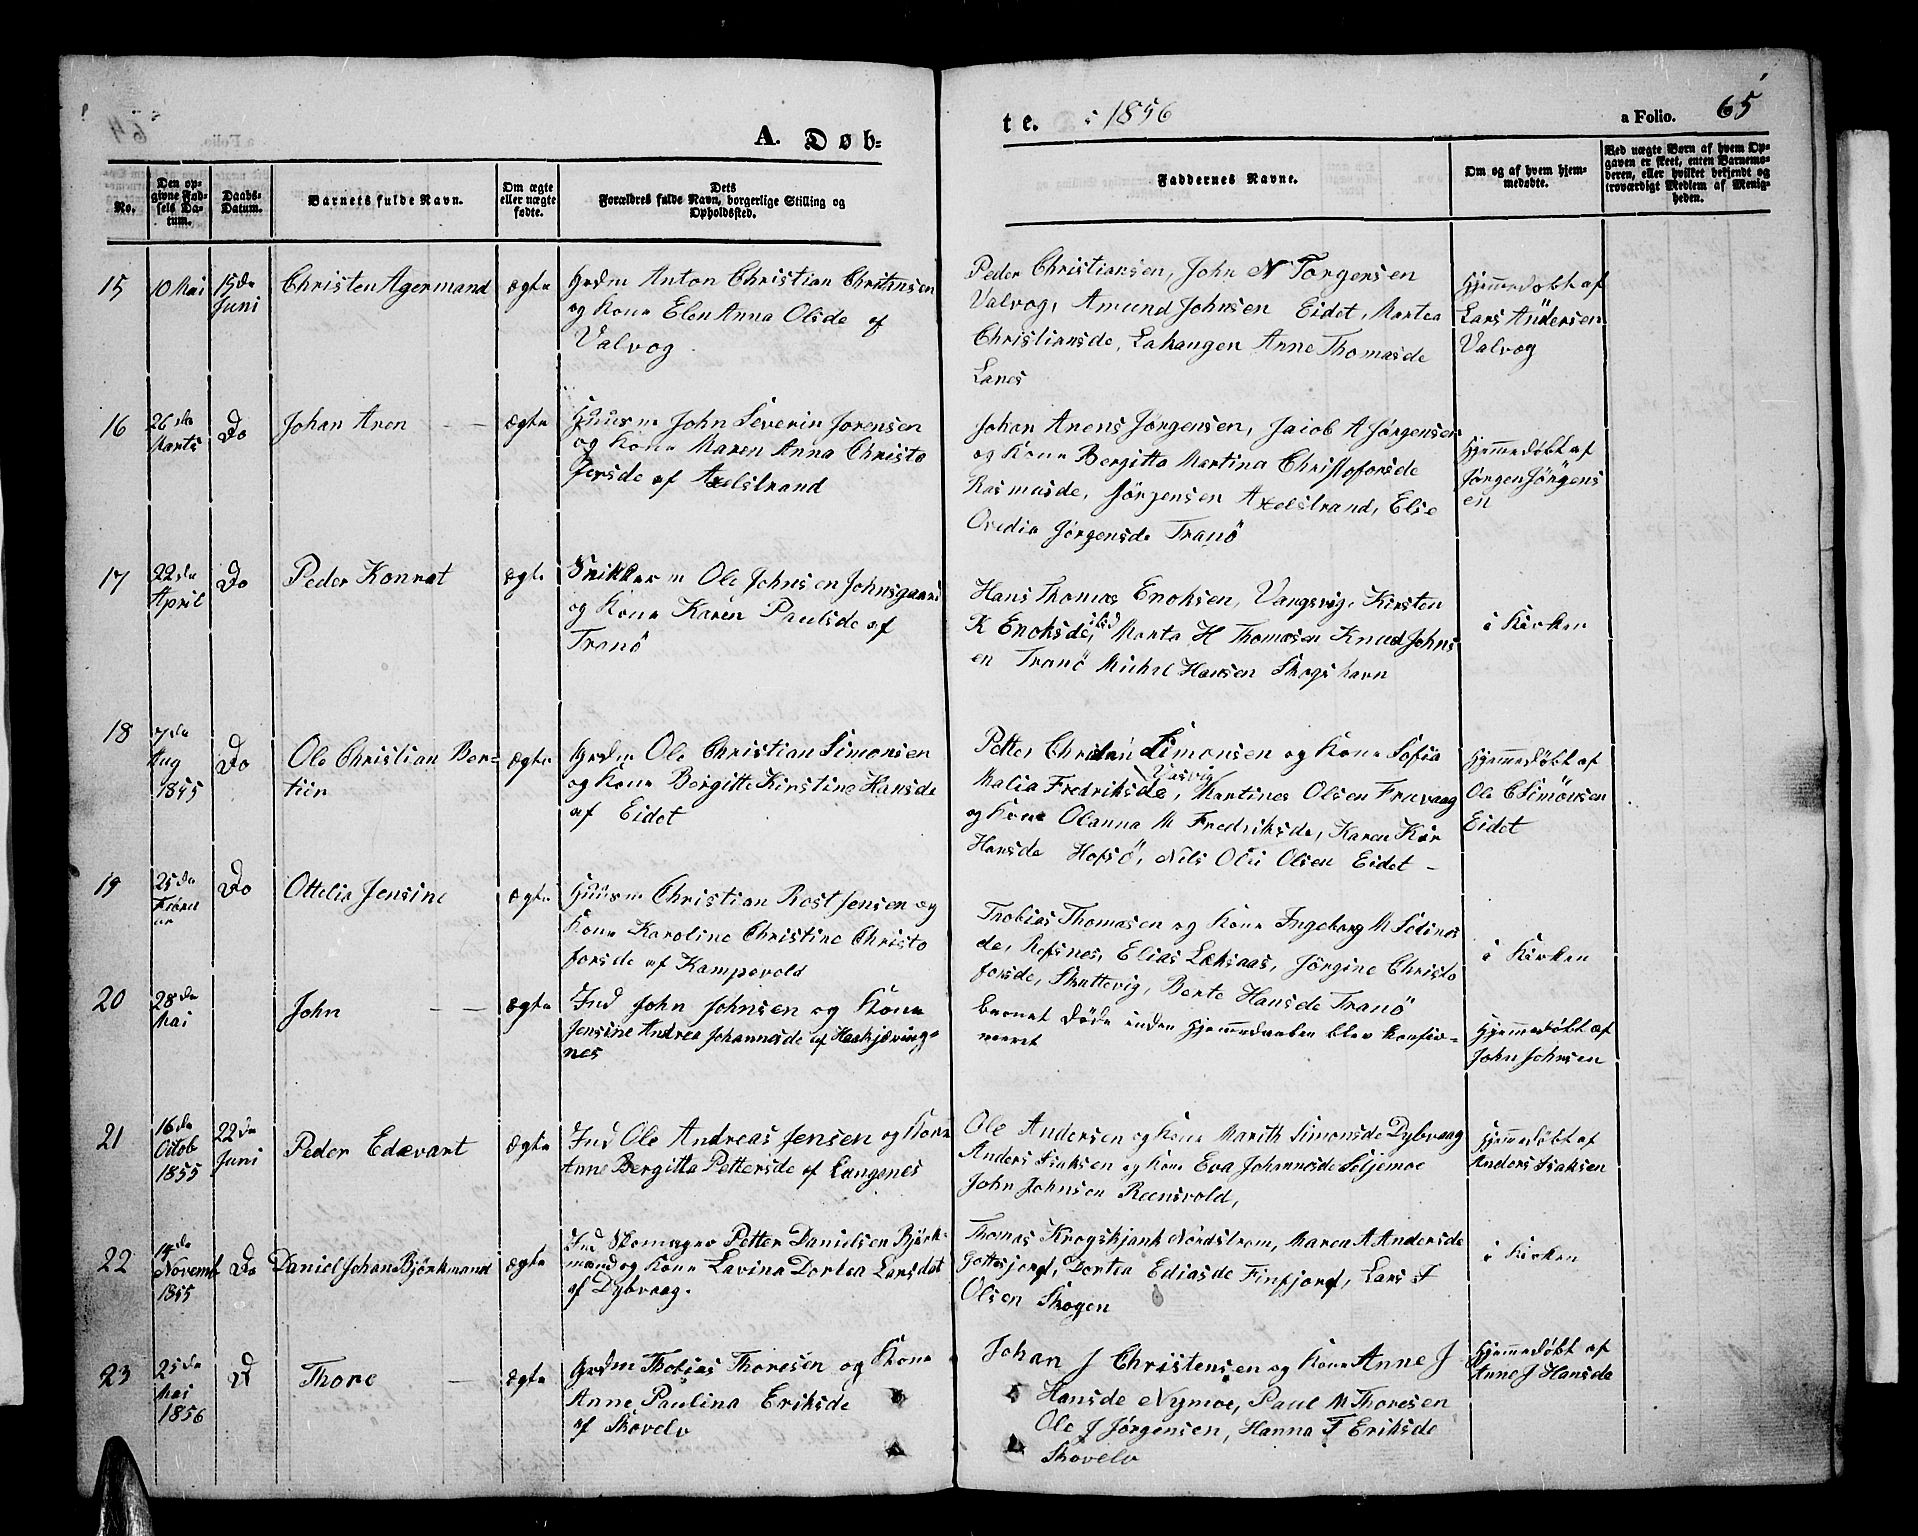 A. Døb-
te. i 1856
a Folio. 65
No.
Den op-
givne Fød-
sels Da-
tum.
Daabs-
Datum.
Barnets fulde Navn.
Om ægte
eller uægte
fødte.
Dets
Forældres fulde Navn, borgerlige Stilling og
Opholdssted.
Faddernes Navne.
Om og af hvem hjem-
medøbte.
Ved uægte Børn af hvem Op-
gaven er skeet, enten Barnemo-
deren, eller hvilket bekjendt og
troværdigt Medlem af Menig-
heden.
15
10 Mai
15de
Juni
Christen Agermand
ægte
Grdm Anton Christian Christensen
og Kone Elen Anna Olsde af
Valvog
Peder Christiansen, John N Torgersen
Valvog, Amund Johnsen Eidet, Martea
Christiansde, Lahaugen Anne Thomasde
Lanes
Hjemmedøbt af
Lars Andersen
Valvog
16
26de
Marts
Do
Johan Aron
ægte
Huusm John Severin Jørensen
og Kone Maren Anna Christo
fersde af Axelstrand
Johan Arens Jørgensen, Jacob A Jørgensen
og Kone Bergitta Martina Christofersde
Rasmusde, Jörgensen Axelstrand, Elie
Ovedia Jørgensde Tranö
Hjemmedøbt af
Jørgen Jörgens
en
17
22de
April
Do
Peder Konrat
ægte
Snikker m Ole Johnsen Johnsgaard
og Kone Karen Paulsde af
Tranö
Hans Thomas Enoksen, Vangsvig, Kirsten
K Enoksde, ibd Marta H Thomasen Knud Johns
en Tranö Mikel Hansen Skogshavn
i Kirken
18
7de
Aug
1855
Do
Ole Christian Ber-
tier
ægte
Grdm Ole Christian Simonsen
og Kone Bergitte Kirstine Hansde
af Eidet
Petter Christian Simonsen og Kone Sofia
Malia Fredriksde, Vasvig Martines Olsen Frovaag
og Kone Olanna M Fredriksde, Karen Kir
Hansde Hofsö, Nils Olai Olsen Eidet -
Hjemmedøbt af
Ole C Simönsen
Eidet
19
25de
Do
Ottelia Jensine
ægte
Huusm Christian Rost Jensen og
Kone Karoline Christine Christo
forsde af Kampevold
Trobias Thomasen og Kone Ingeborg M Edines
de, Refsnes, Elias Leksaas, Jørgine Christo
forsde, Skattevig, Berte Hansde Tranö
i Kirken
20
28de
Mai
John
ægte
Ind John Johnsen og Kone
Jensine Andrea Johannesde af Haskjæring-
nes
barnet døde inden Hjemmedaaben blev konfir-
meret
Hjemmedøbt af
John Johnsen
21
16de
Octob
1855
22de
Juni
Peder Edevart
ægte
Ind Ole Andreas Jensen og Kone
Anne Bergitta Pettersde af Langenes
Ole Andersen og Kone Marith Simonsde Dybvaag
Anders Isaksen og Kone Eva Johannesde Seljemoe
John Johnsen Reensvold,
Hjemmedøbt af
Anders Isaksen
22
14de
Novemb
1855
Do
Daniel Johan Björkmand
ægte
Ind Skomagre Petter Danielsen Björk-
mand og Kone Lavina Dortea Larsdot
af Dybvaag.
Thomas Krogskjank Nordstrom, Maren A Andersde
Gottesjord, Dortea Ediasde Finfjord, Lars I
Olsen Skogen
i Kirken
23
25de
Mai
1856
D
Thore
ægte
Grdm Thobias Thoresen og Kone
Anne Paulina Eriksde
af Skovelv
Johan J Christensen og Kone Anne J
Hansde Nymoe, Paul M Thoresen
Ole J Jörgensen, Hanna F Eriksde
Skovelv
Hjemmedøbt af
Anne J Hansde